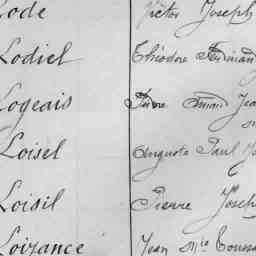 Lode Victor Joseph
Lodiel Théodore Fernand
Logeais Pierre Amand Jea
Loisel Auguste Paul J
Loisil Pierre Jh Joseph
Loizance Jean Mie Toussa